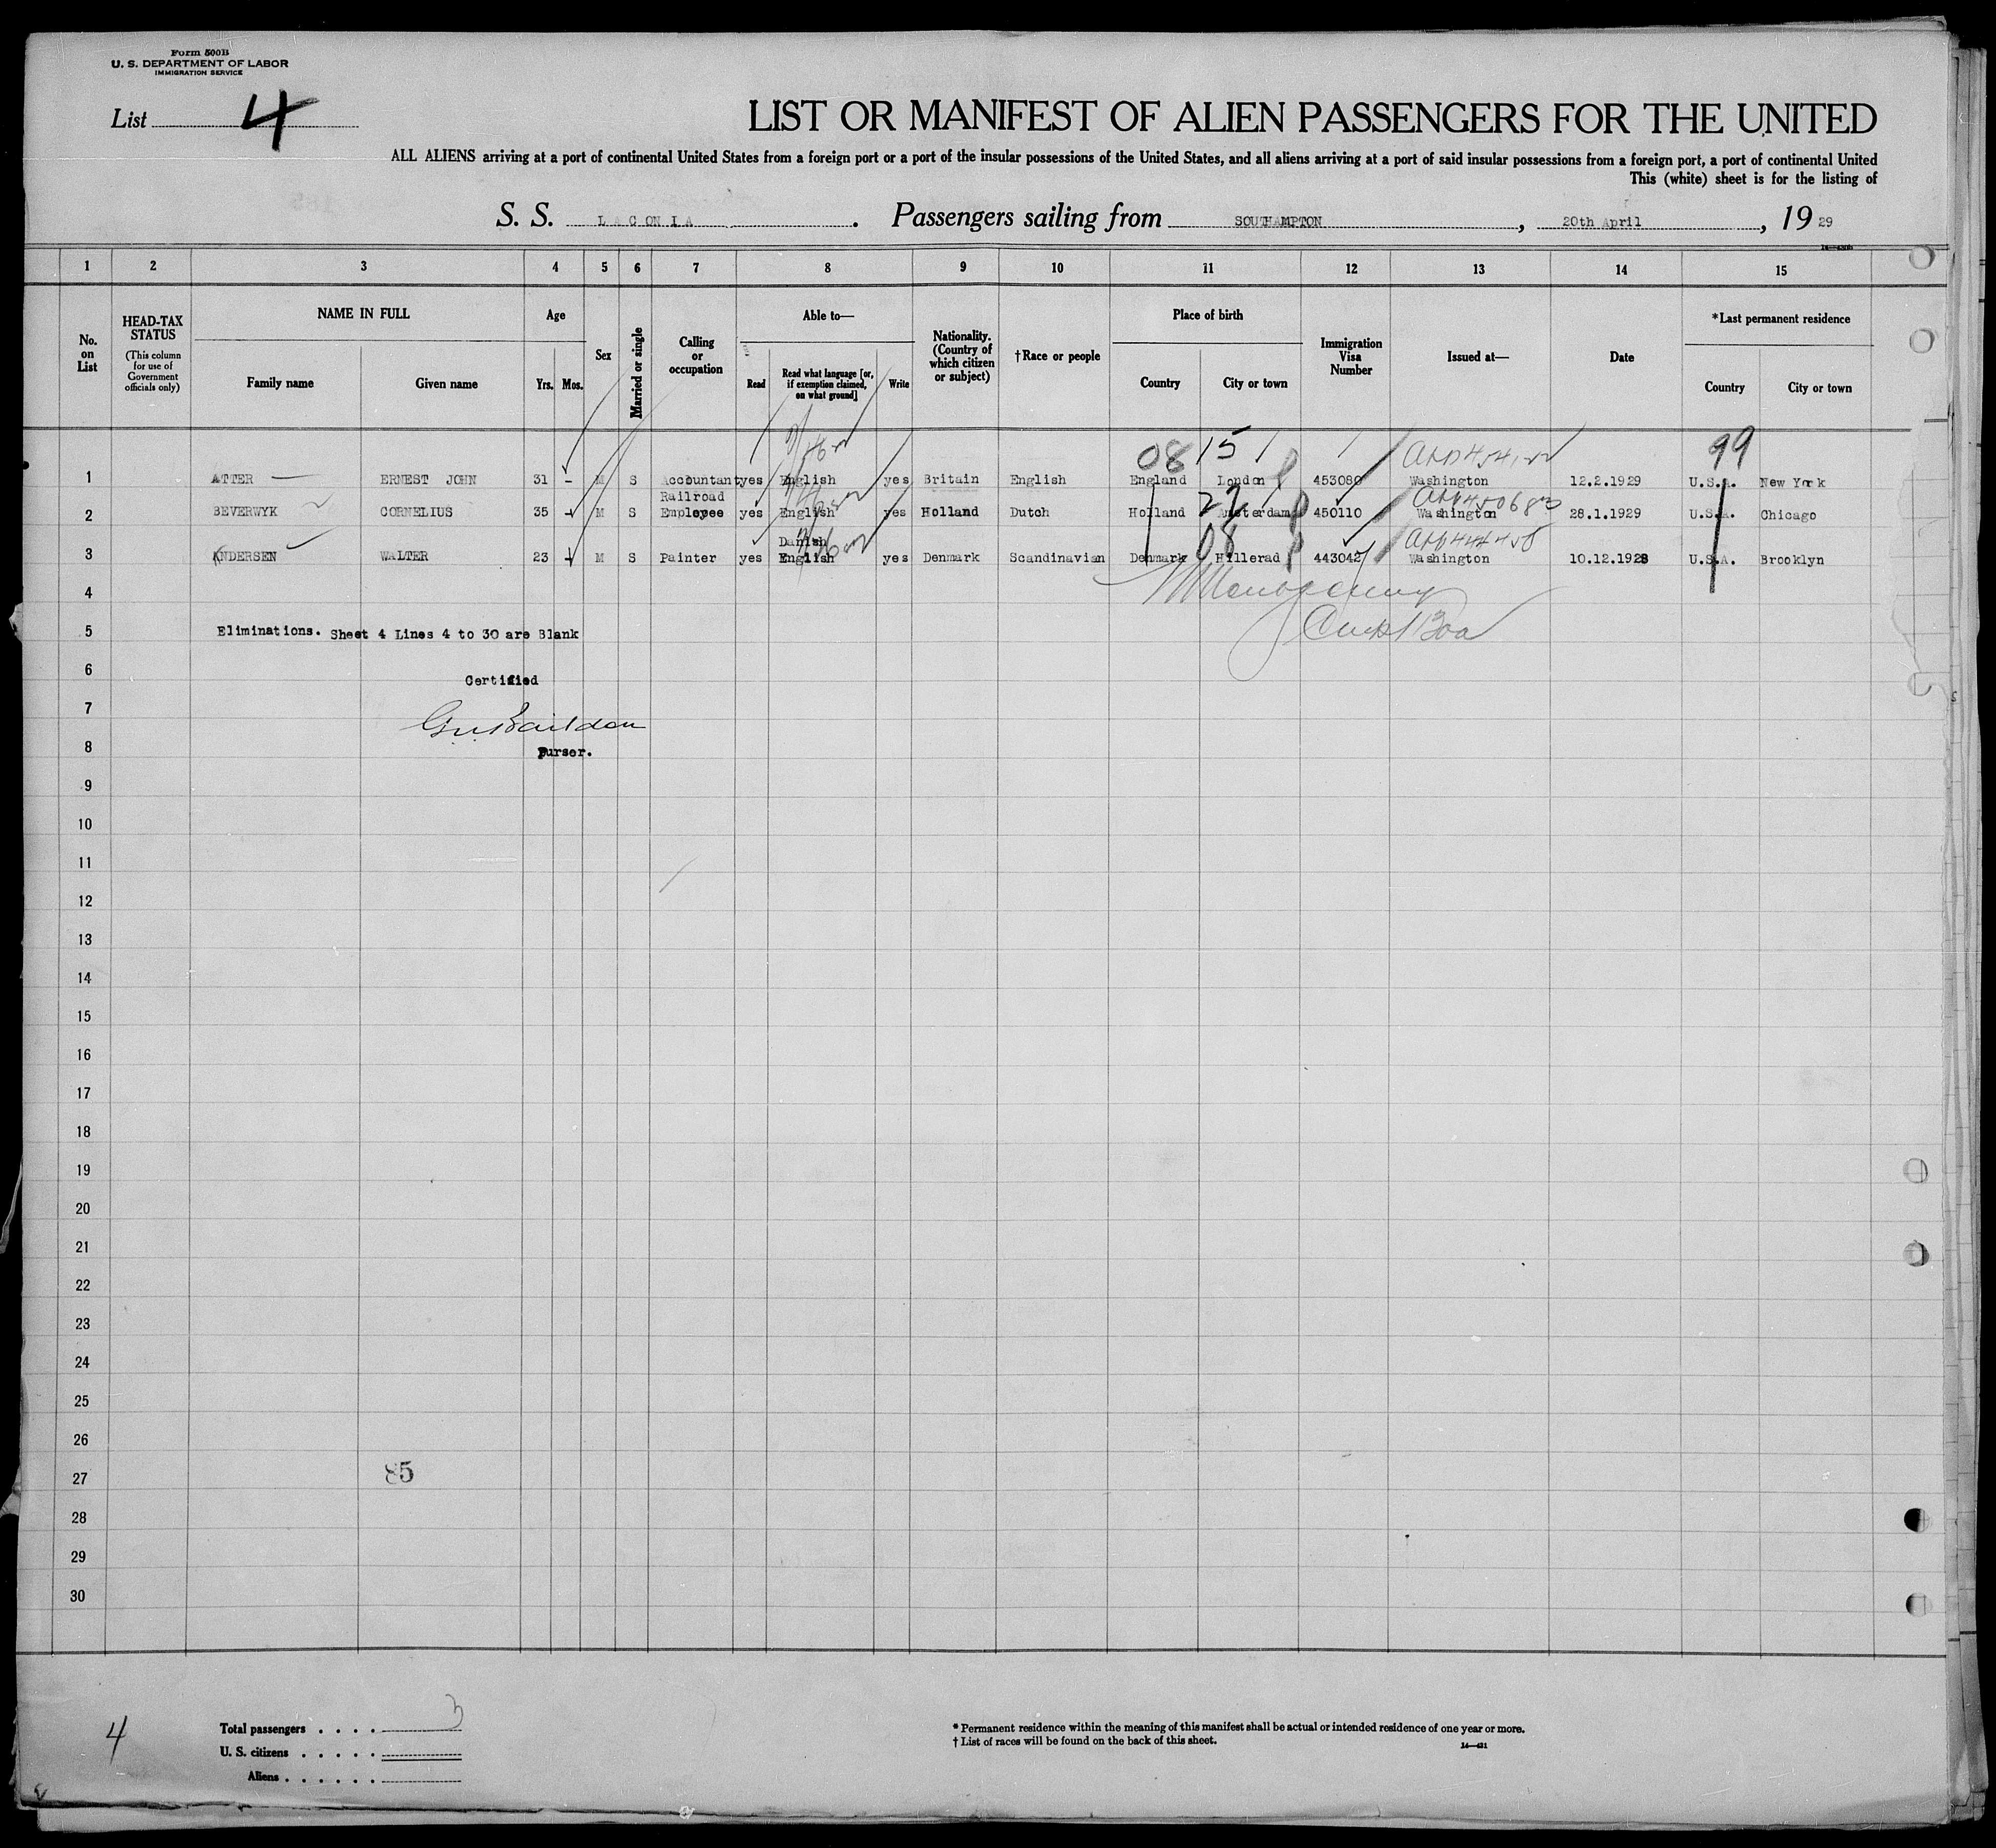 Form 500B
U. S. DEPARTMENT OF LABOR
IMMIGRATION SERVICE
List 4
LIST OR MANIFEST OF ALIEN PASSENGERS FOR THE UNITED
ALL ALIENS arriving at a port of continental United States from a foreign port or a port of the insular possessions of the United States, and all aliens arriving at a port of said insular possessions from a foreign port, a port of continental United
This (white) sheet is for the listing of
S. S. LACONIA. Passengers sailing from SOUTHAMPTON, 20th April, 19 29
1 2 3 4 5 6 7 8 9 10 11 12 13 14 15
No. on List
HEAD-TAX STATUS
(This column for use of Government officials only)
NAME IN FULL
Family name Given name
Age
Yrs. Mos.
Sex
Married or single
Calling or occupation
Able to—
Read
Read what language [or, if exemption claimed, on what ground]
Write
Nationality. (Country of which citizen or subject)
†Race or people
Place of birth
Country City or town
Immigration Visa Number
Issued at—
Date
*Last permanent residence
Country City or town
08 15 99
1 ATTER ERNEST JOHN 31 - M S Accountant yes English yes Britain English England London 453080 Washington 12.2.1929 U.S.A. New York
2 BEVERWYK CORNELIUS 35 - M S Railroad Employee yes English yes Holland Dutch Holland Amsterdam 450110 Washington 28.1.1929 U.S.A. Chicago
22
3 ANDERSEN WALTER 23 - M S Painter yes Danish English yes Denmark Scandinavian Denmark Hillerad 443042 Washington 10.12.1928 U.S.A. Brooklyn
08
4
5 Eliminations. Sheet 4 Lines 4 to 30 are Blank
6 Certified
7
8 Purser.
9
10
11
12
13
14
15
16
17
18
19
20
21
22
23
24
25
26
27 85
28
29
30
4
Total passengers . . . . 3
U. S. citizens . . . . .
Aliens . . . . . .
* Permanent residence within the meaning of this manifest shall be actual or intended residence of one year or more.
† List of races will be found on the back of this sheet.
14—421